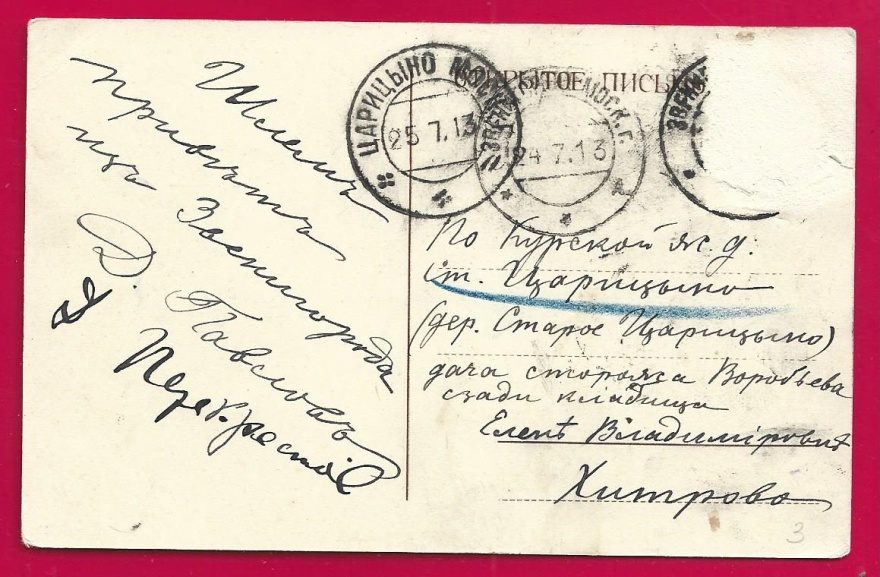 ОТКРЫТОЕ ПИСЬМО
ЦАРИЦЫНО МОСК.
25 7.13
ЗВЕНИГ. МОСК. Г.
24 7.13
А
ЗВЕНИ
Шлемъ
привѣтъ
изъ Звенигорода
Д. Павловъ
По Курской ж. д.
ст. Царицыно
(дер. Старое Царицыно)
дача сторожа Воробьева
сзади кладбища
Еленѣ Владимiровнѣ
Хитрово
3